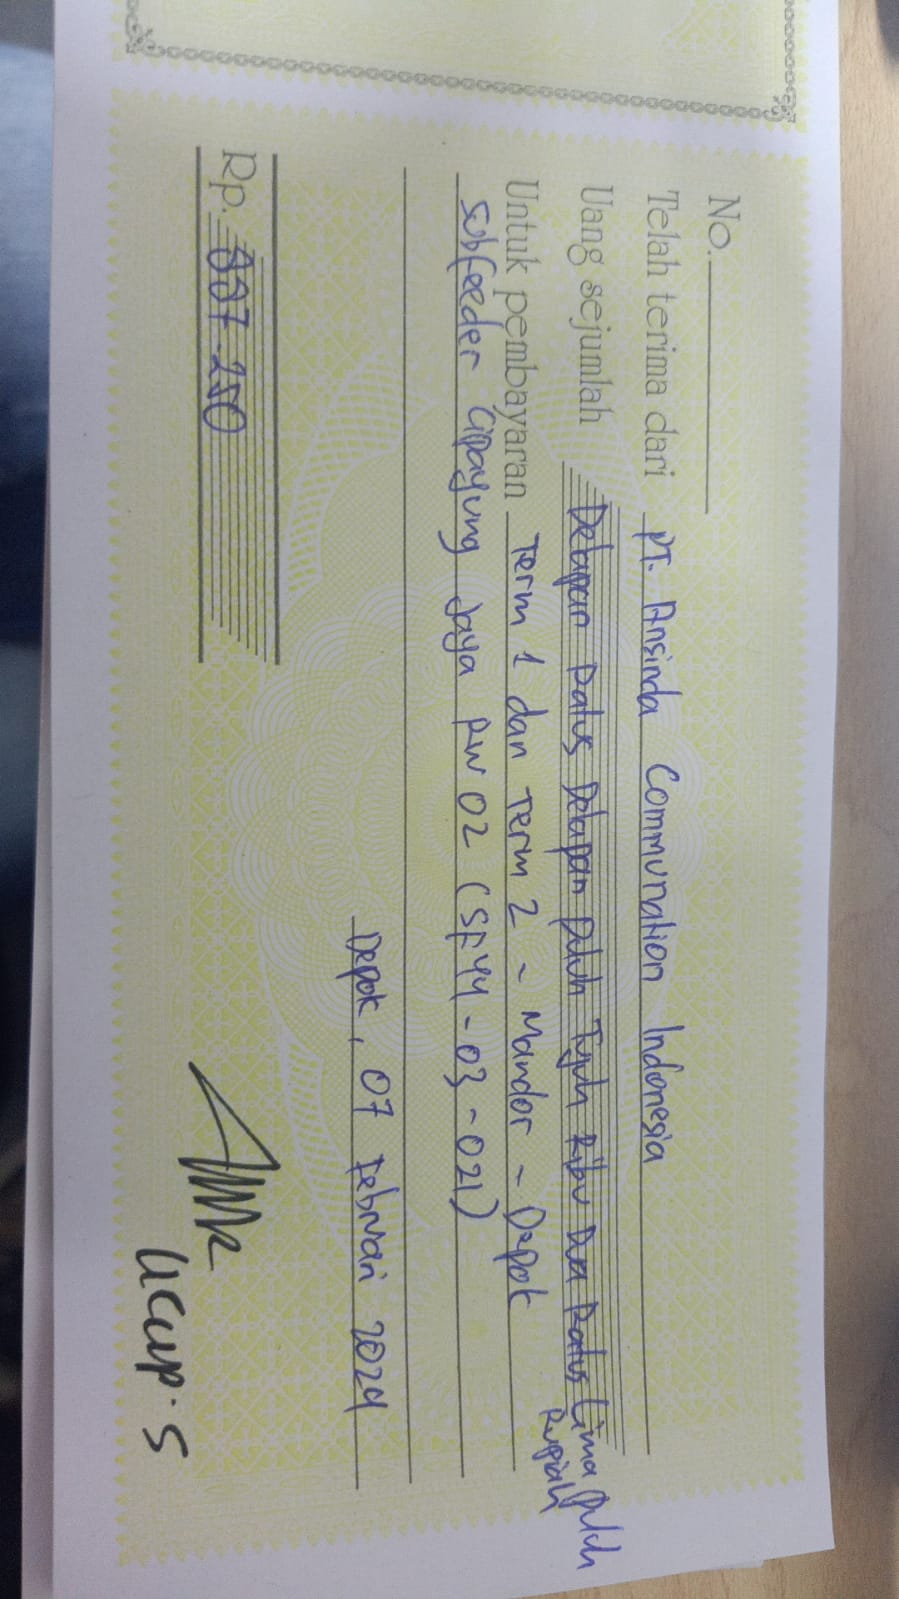 No.
Telah terima dari PT. Ansinda Communation Indonesia
Uang sejumlah Delapan Ratus Delapan Puluh Tujuh Ribu Dua Ratus Lima Puluh
Rupiah
Untuk pembayaran Term 1 dan Term 2 - Mandor - Depok
Subfeeder Cipayung Jaya RW 02 (SF44-03-021)
Depok, 07 Februari 2024
Rp. 887.250
Ucup. S